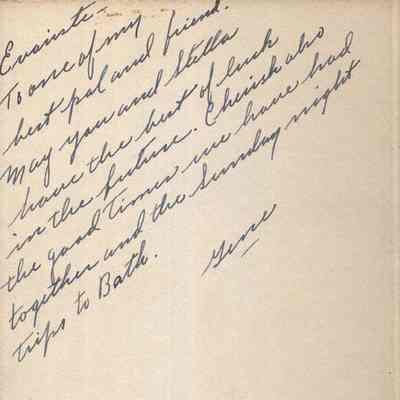 To one of my
best pal and friend.
May you and Stella
have the best of luck
in the future. Cherish also
the good times we have had
together and the Sunday night
trips to Bath.
Gene